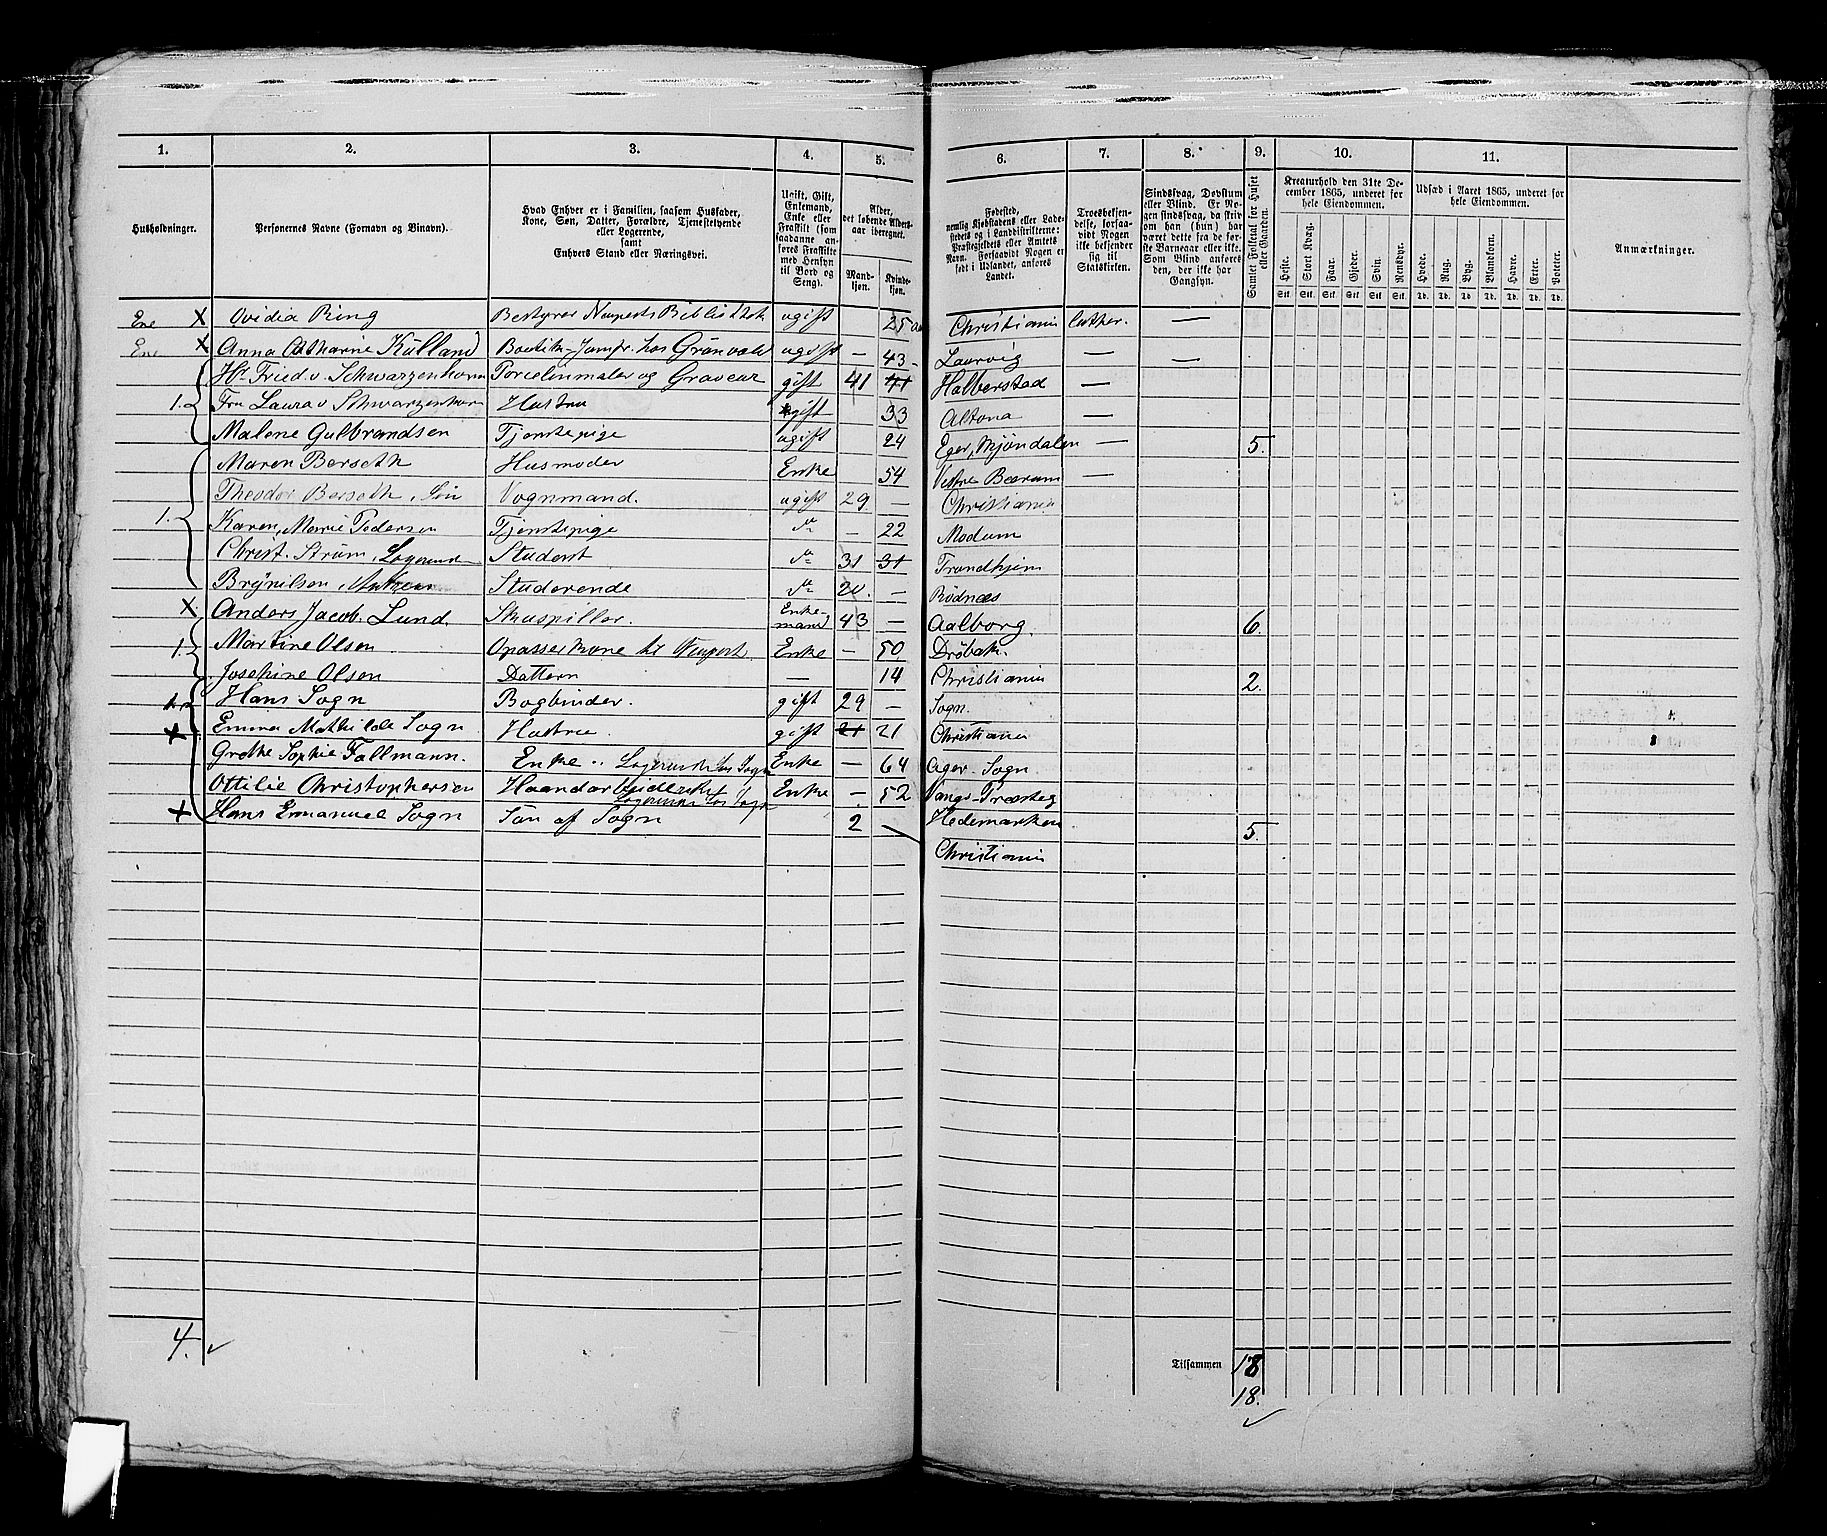 1. 2. 3. 4. 5. 6. 7. 8. 9. 10. 11.
Husholdninger.
Personernes Navne (Fornavn og Binavn).
Hvad Enhver er i Familien, saasom Husfader, Kone, Søn, Datter, Forældre, Tjenestetyende eller Logerende, samt Enhvers Stand eller Næringsvei.
Ugift, Gift, Enkemand, Enke eller Fraskilt (som saadanne anføres Fraskilte med Hensyn til Bord og Seng).
Alder, det løbende Aldersaar iberegnet.
Mandkjøn. Kvindekjøn.
Fødested, nemlig Kjøbstadens eller Ladestedets og i Landdistrikterne: Præstegjeldets eller Amtets Navn. Forsaavidt Nogen er født i Udlandet, anføres Landet.
Troesbekjendelse, forsaavidt Nogen ikke bekjender sig til Statskirken.
Sindssvag, Døvstum eller Blind. Er Nogen sindssvag, da skriv om han (hun) har været dette fra de første Barneaar eller ikke. Som Blind anføres den, der ikke har Gangsyn.
Samlet Folketal for Huset eller Gaarden.
Kreaturhold den 31te December 1865, underet for hele Eiendommen.
Heste. Stort Kvæg. Faar. Gjeder. Svin. Rensdyr.
Stk. Stk. Stk. Stk. Stk. Stk.
Udsæd i Aaret 1865, underet for hele Eiendommen.
Hvede. Rug. Byg. Blandkorn. Havre. Erter. Poteter.
Td. Td. Td. Td. Td. Td. Td.
Anmærkninger.
Ene X Ovidia Ring Bestyrer Neuperts Bibliothek ugift 25 Christiania luther. —
Ene X Anna Catharine Külland Boutik-Jomfr. hos Grönvold ugift — 43 Laurvig — —
Hr Fried. v. Schwarzenhorn Porcelinmaler og Graveur gift 41 41 Halberstad —
1. Fru Laura v Schwarzenhorn Hustru gift 33 Altona —
Malene Gulbrandsen Tjenstepige ugift 24 Eger, Mjöndalen — 5.
Maren Berseth Husmoder Enke 54 Vestre Bærum —
Theodor Berseth, Sön Vognmand. ugift 29. — Christiania
1. Karen Marie Pedersen Tjenstepige — 22 Modum
Christ. Ström, Logerende Student 31 31 Trondhjem
Brynilsen, Studerende 20. — Rödnæs
X Anders Jacob. Lund. Skuespiller. Enkemand 43 — Aalborg. 6.
1. Martine Olsen Opasserkone til Neupert Enke — 50 Dröbak.
Josephine Olsen Dattern — 14 Christiania 2.
1. Hans Sogn Bogbinder. gift 29 — Sogn.
X Emma Mathilde Sogn Hustru. gift 21 21 Christiania
Grethe Sophie Fallmann. Enke Logerende hos Sogn Enke — 64 Ager Sogn
Ottilie Christophersen Haandarbeiderske Logerende hos Sogn Enke — 52 Vangs Præsteg
X Hans Emmanuel Sogn Sön af Sogn 2 — Hedemarken 5.
Christiania
4. ✓
Tilsammen 18
18. ✓